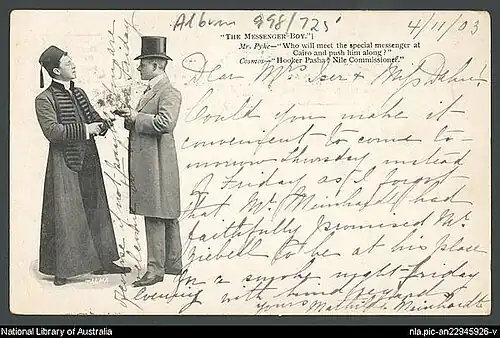 Album 998/725
4/11/03
"THE MESSENGER BOY."
Mr. Pyke—"Who will meet the special messenger at
Cairo and push him along?"
Cosmos—"Hooker Pasha, Nile Commissioner."
Dear Mrs Iser & Miss
Could you make it
convenient to come to-
morrow Thursday instead
of Friday as I forgot
that Mr. Meinhardt had
faithfully promised Mr.
Ziebell to be at his place
on a smoke night-Friday
Evening with kind regards
yours Mathilde Meinhardt
National Library of Australia
nla.pic-an22945926-v